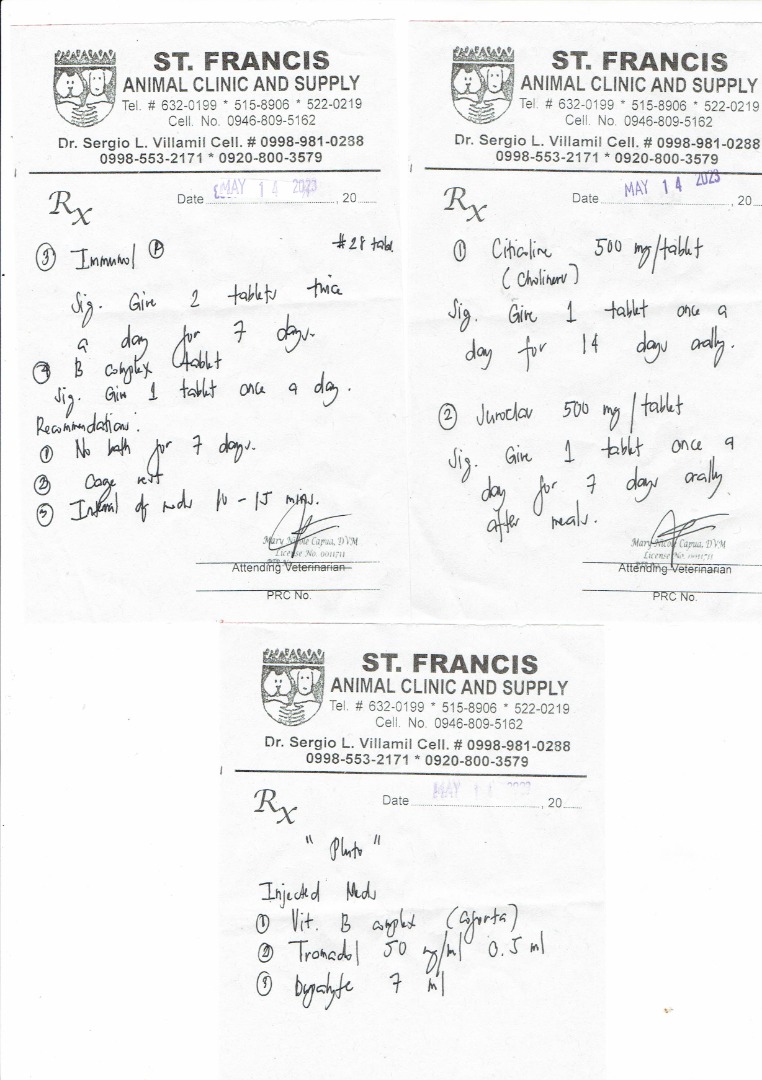 ST. FRANCIS
ANIMAL CLINIC AND SUPPLY
Tel. # 632-0199 * 515-8906 * 522-0219
Cell. No. 0946-809-5162
Dr. Sergio L. Villamil Cell. # 0998-981-0288
0998-553-2171 * 0920-800-3579
Rx
Date MAY 14 2023, 20
③ Immunol #28 tabl
Sig. Give 2 tablets twice
a day for 7 days.
④ B complex tablet
Sig. Give 1 tablet once a day.
Recommendation:
① No bath for 7 days.
② Cage rest
③ Interval of meds 10 - 15 mins.
Mary Nicole Capua, DVM
License No.
Attending Veterinarian
PRC No.
ST. FRANCIS
ANIMAL CLINIC AND SUPPLY
Tel. # 632-0199 * 515-8906 * 522-0219
Cell. No. 0946-809-5162
Dr. Sergio L. Villamil Cell. # 0998-981-0288
0998-553-2171 * 0920-800-3579
Rx
Date MAY 14 2023, 20
① Citicoline 500 mg/tablet
(Cholinerv)
Sig. Give 1 tablet once a
day for 14 days orally.
② Juroclav 500 mg/tablet
Sig. Give 1 tablet once a
day for 7 days orally
after meals.
Mary Nicole Capua, DVM
License No.
Attending Veterinarian
PRC No.
ST. FRANCIS
ANIMAL CLINIC AND SUPPLY
Tel. # 632-0199 * 515-8906 * 522-0219
Cell. No. 0946-809-5162
Dr. Sergio L. Villamil Cell. # 0998-981-0288
0998-553-2171 * 0920-800-3579
Rx
Date MAY 14 2023, 20
" Pluto "
Injected Meds
① Vit. B complex (Coforta)
② Tramadol 50 mg/ml 0.5 ml
③ Dupalyte 7 ml